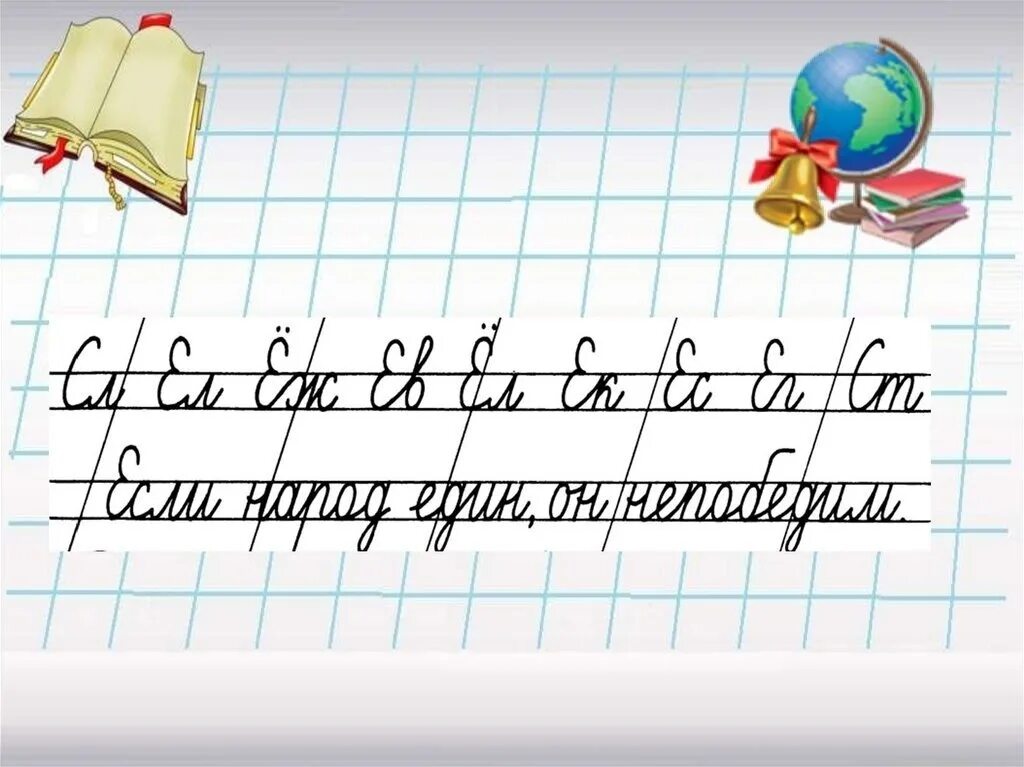 Сл Ел Ёж Ев Ёл Ек Ес Ег Ст
Если народ един, он непобедим.